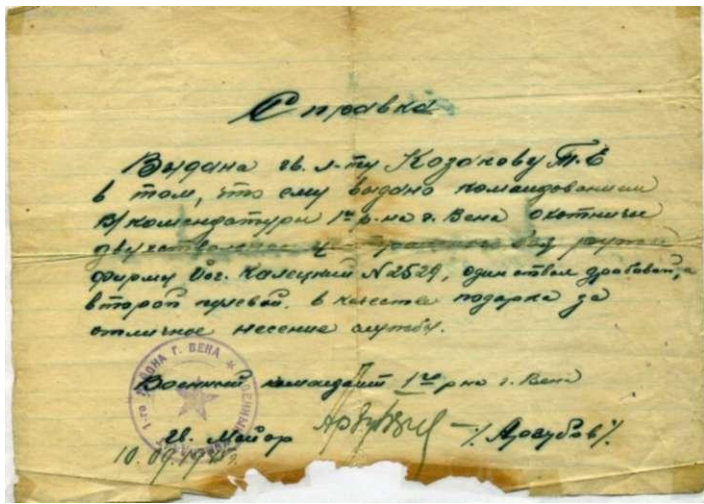 Справка
Выдана гв. л-ту Козакову Т.Е
в том, что ему выдано командованием
В/комендатуры 1го р-на г. Вена охотничье
двухствольное ружье
фирмы Иог. Калецкий №2529, один ствол дробовой, а
второй пулевой. в качестве подарка за
отличное несение службы.
Военный комендант 1го р-на г. Вена
гв. Майор /Арзубов/.
10.09.19
1-го РАЙОНА Г. ВЕНА ★ ВОЕННЫЙ